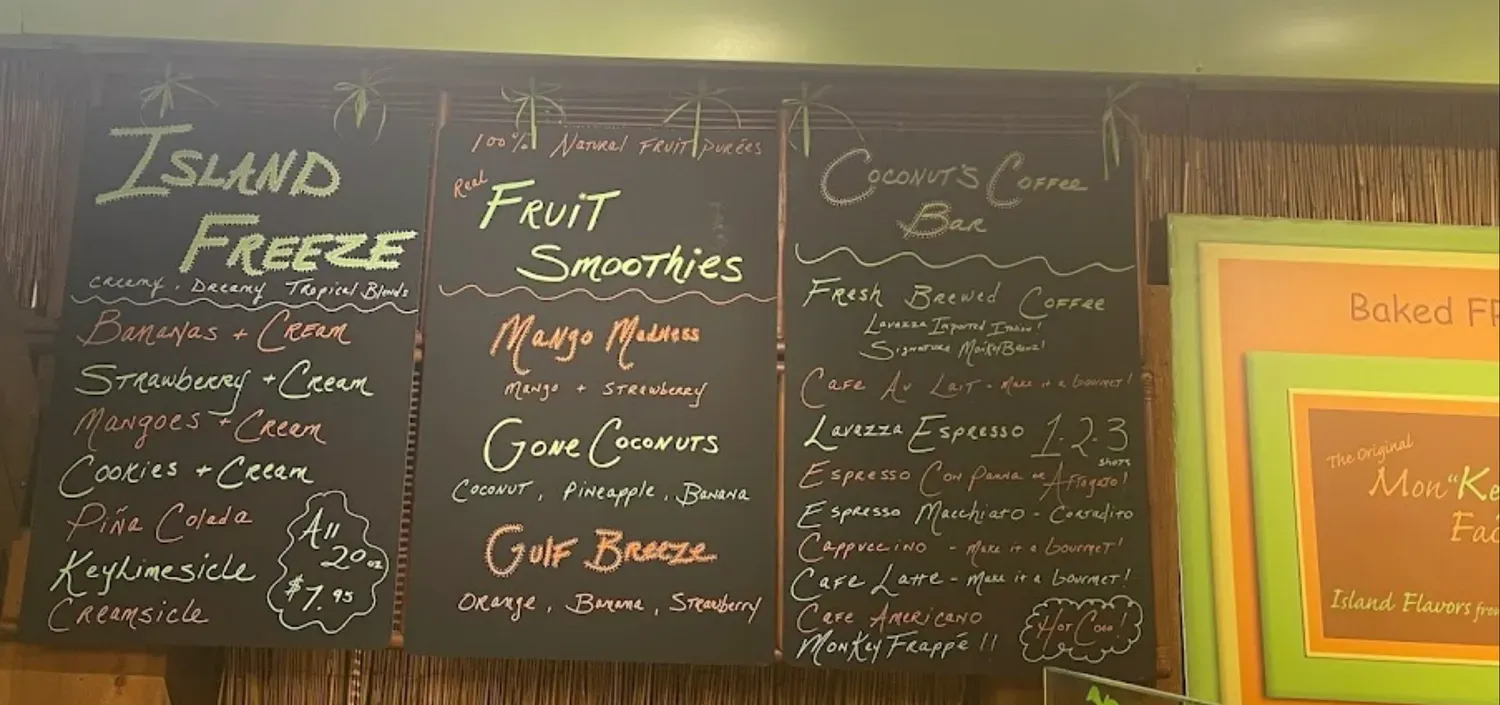 ISLAND
FREEZE
Creamy, Dreamy Tropical Blends
BANANAS + CREAM
STRAWBERRY + CREAM
MANGOES + CREAM
COOKIES + CREAM
PIÑA COLADA
KEYLIMESICLE
CREAMSICLE
All
20oz
$7.95
100% NATURAL FRUIT PURÉES
Real
FRUIT
SMOOTHIES
MANGO MADNESS
MANGO + STRAWBERRY
GONE COCONUTS
COCONUT, PINEAPPLE, BANANA
GULF BREEZE
ORANGE, BANANA, STRAWBERRY
COCONUT'S COFFEE
BAR
FRESH BREWED COFFEE
LAVAZZA IMPORTED ITALIAN!
SIGNATURE
CAFE AU LAIT - MAKE IT A GOURMET!
LAVAZZA ESPRESSO 1-2-3
SHOTS
ESPRESSO CON PANNA or AFFOGATO!
ESPRESSO MACCHIATO - CORTADITO
CAPPUCCINO - MAKE IT A GOURMET!
CAFE LATTE - MAKE IT A GOURMET!
CAFE AMERICANO
MONKEY FRAPPÉ !!
HOT COCO!
Baked FR
The Original
Mon"Ke
Fac
Island Flavors from